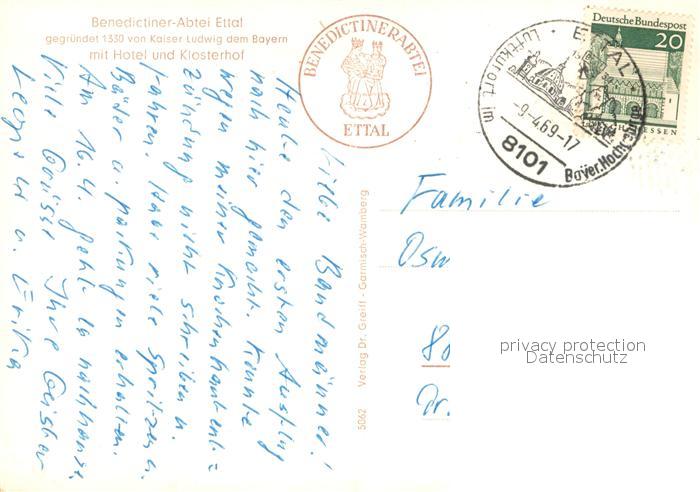 Benedictiner-Abtei Ettal
gegründet 1330 von Kaiser Ludwig dem Bayern
mit Hotel und Klosterhof
BENEDICTINERABTEI
ETTAL
ETTAL
Luftkurort im
-9.4.69-17
8101
Deutsche Bundespost
20
ESSEN
Liebe Bandmänner!
Heute den ersten Ausflug
nach hier gemacht. Konnte
wegen meiner Knochenhautent=
zündung nicht schreiben u.
fahren. Habe viele Spritzen u.
Bäder u. Packungen erhalten.
Am 16.4. geht es nachhause.
Viele Grüsse Ihre
u. Erika
5062 Verlag Dr. Greiff - Garmisch-Wamberg
Familie
Osw
80
Dr.
privacy protection
Datenschutz